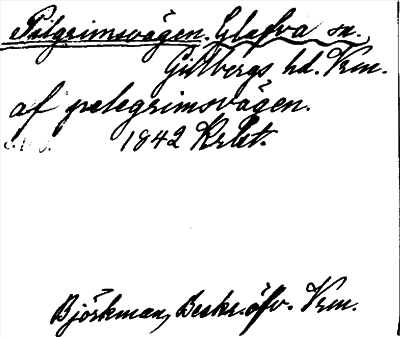 Pilgrimsvägen. Glafva sn.,
Gillbergs hd. Vrm.
af pelegrimsvägen.
1842 Krbt.
Björkman, Beskr. öfv. Vrm.